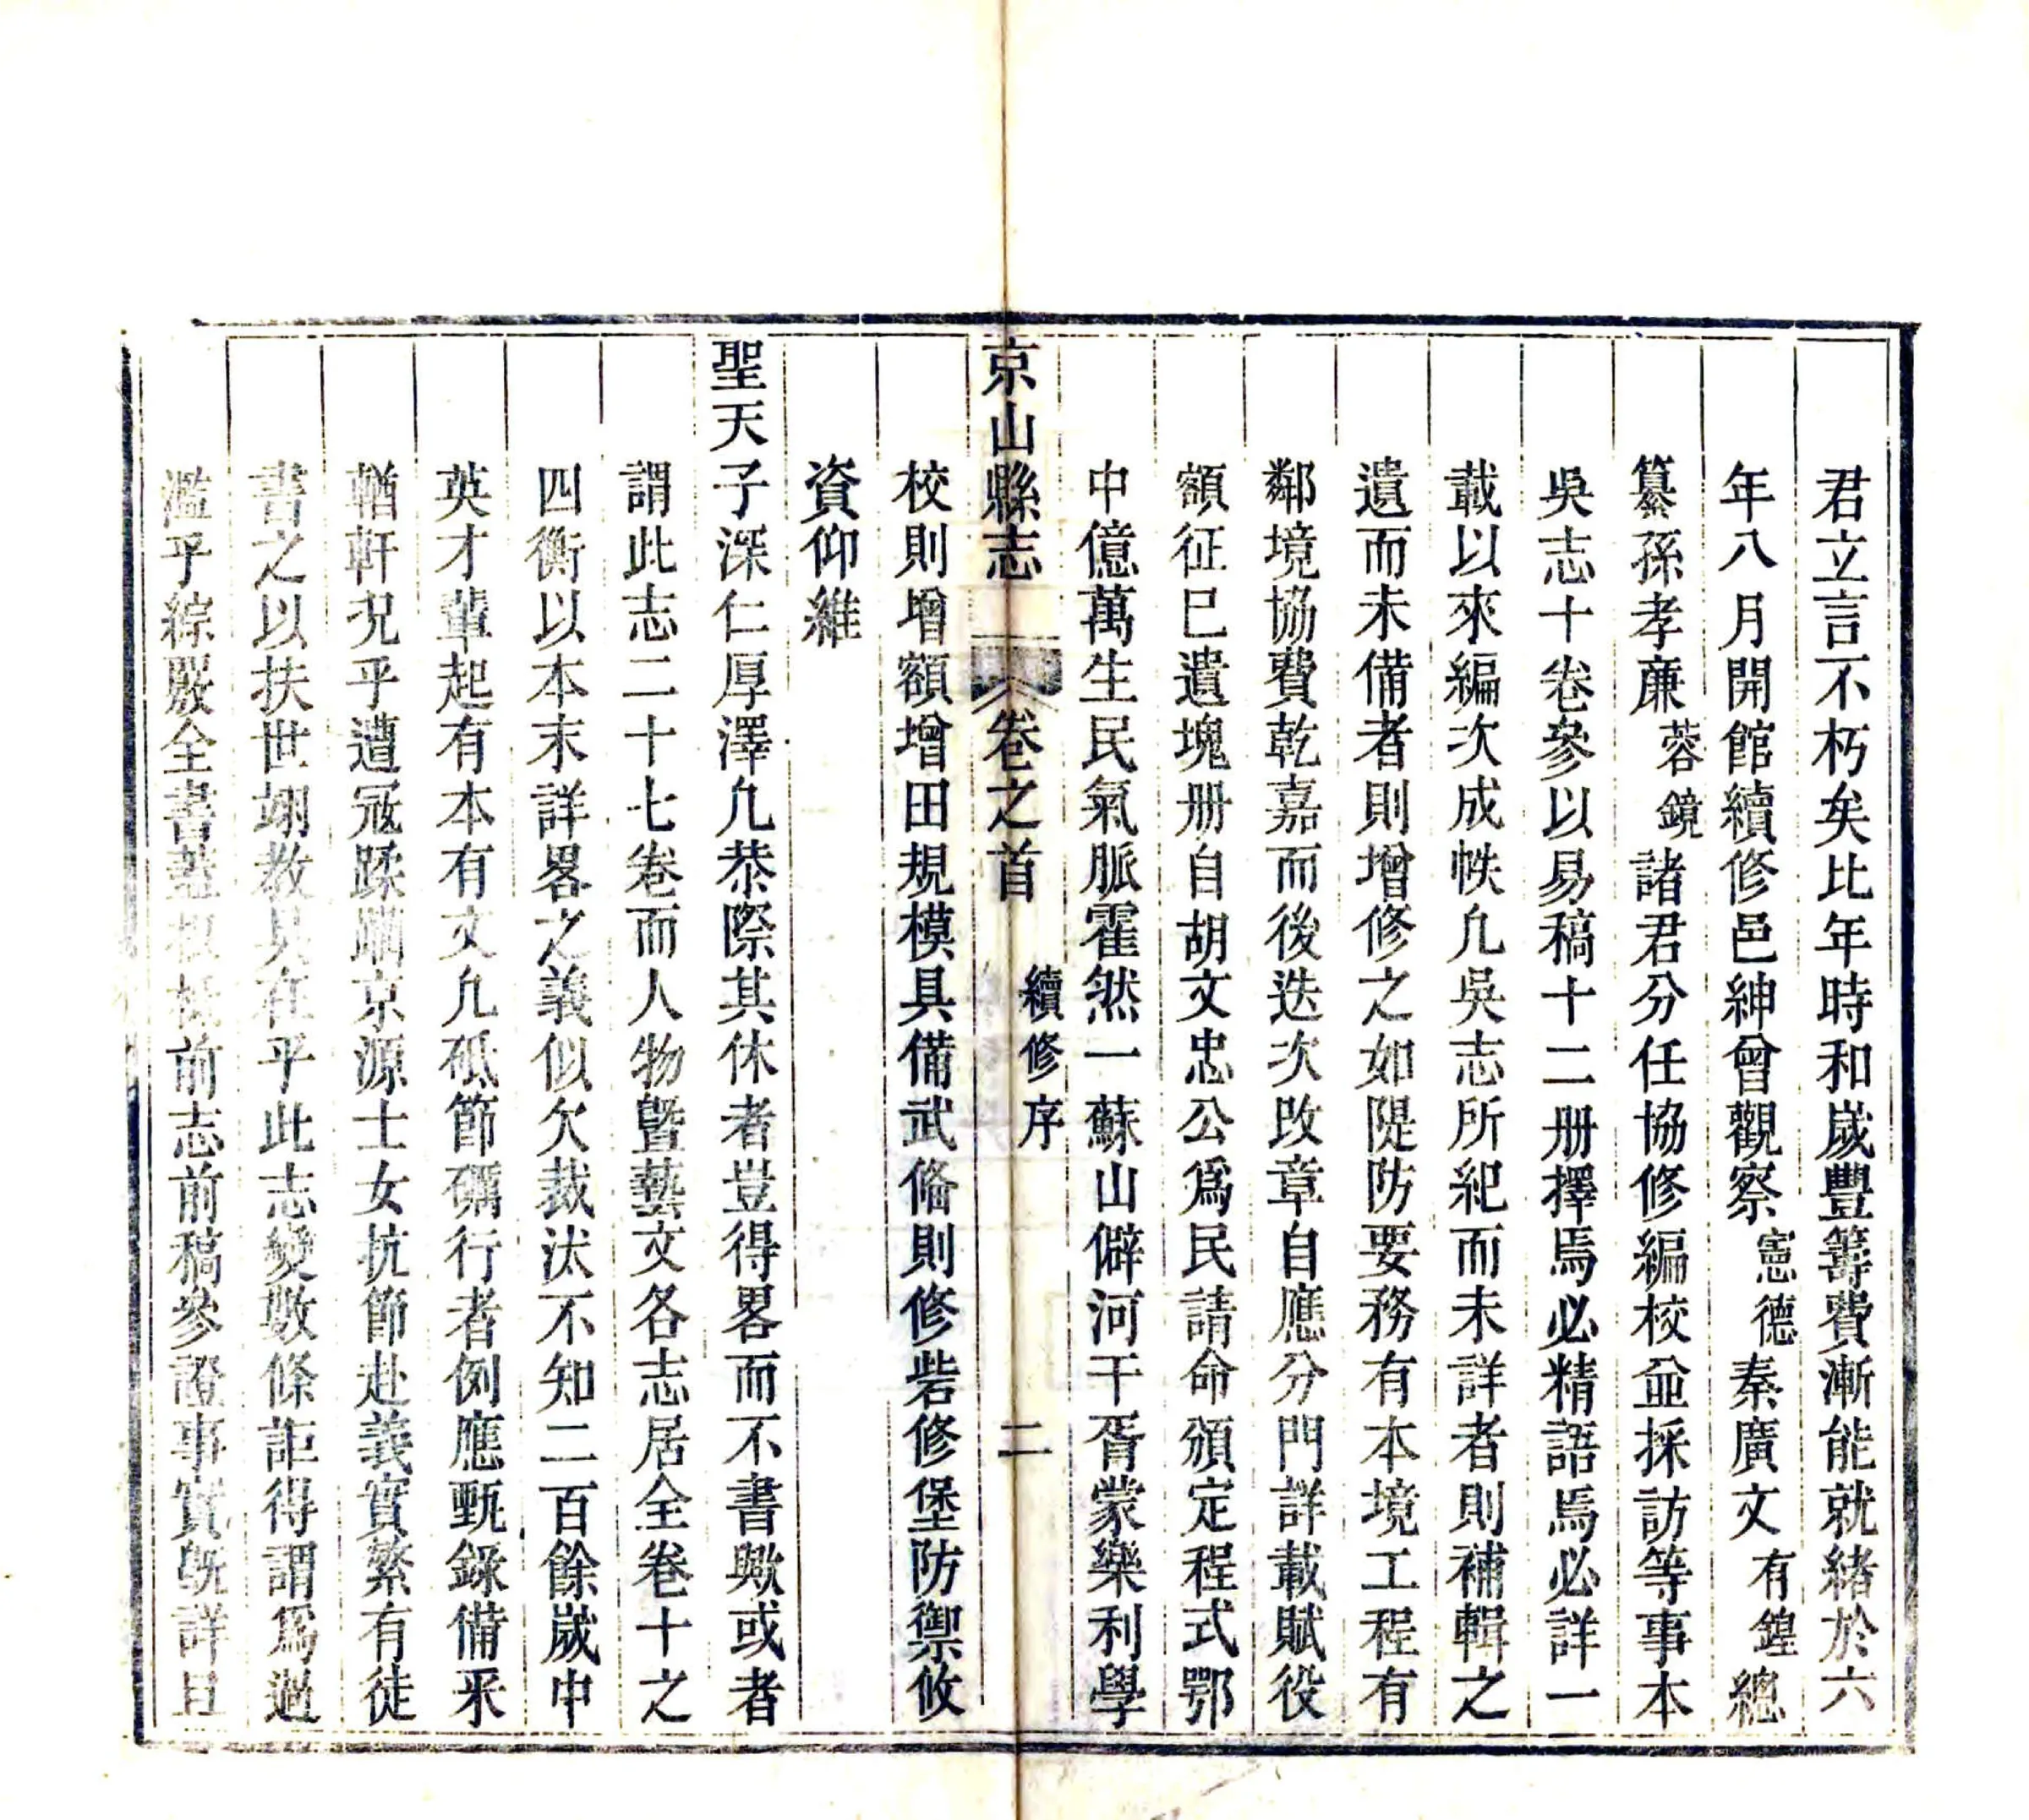 君立言不朽矣比年時和歲豐籌費漸能就緒於六
年八月開館續修邑紳曾觀察憲德秦廣文有鍠總
纂孫孝廉蓉鏡諸君分任協修編校並採訪等事本
吳志十卷參以易稿十二册擇焉必精語焉必詳一
載以來編次成帙凢吳志所紀而未詳者則補輯之
遺而未備者則增修之如隄防要務有本境工程有
鄰境協費乾嘉而後迭次改章自應分門詳載賦役
額征巳遺塊册自胡文忠公爲民請命頒定程式鄂
中億萬生民氣脈霍然一蘇山僻河干胥蒙樂利學
京山縣志 卷之首 續修序 二
校則增額增田規模具備武俻則修砦修堡防禦攸
資仰維
聖天子深仁厚澤凢恭際其休者豈得畧而不書歟或者
謂此志二十七卷而人物曁藝文各志居全卷十之
四衡以本末詳畧之義似欠裁汰不知二百餘歲中
英才輩起有本有文凢砥節礪行者例應甄錄備采
輶軒況乎遭冦蹂躪京源士女抗節赴義實繁有徒
書之以扶世翊教具在乎此志變數條詎得謂爲過
濫乎綜覈全書前志前稿參證事實旣詳且